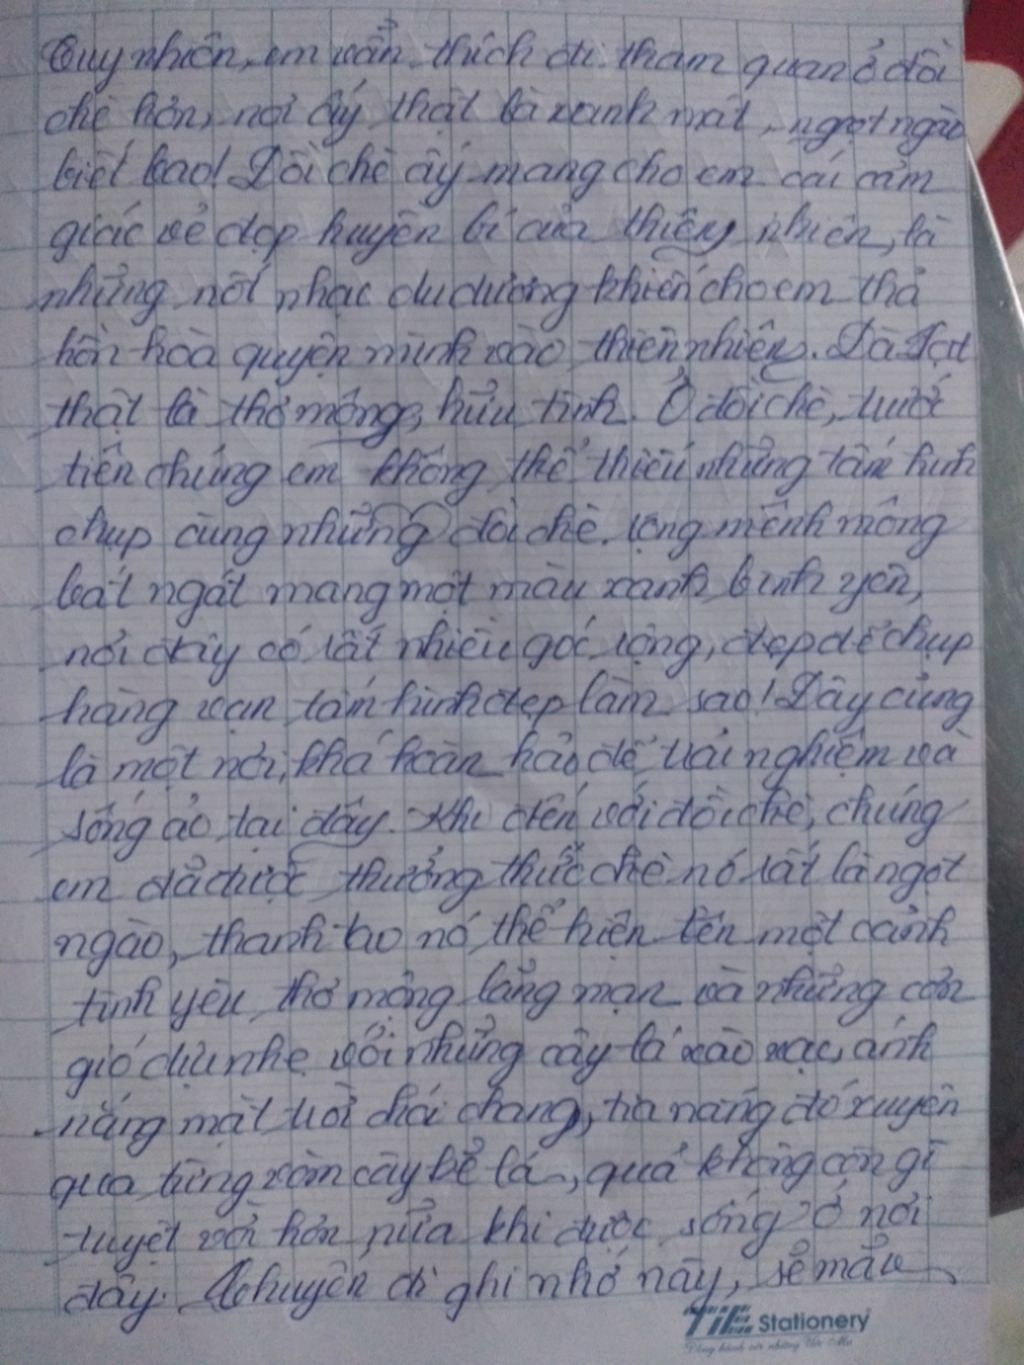 Tuy nhiên, em vẫn thích đi tham quan ở đồi
chè hơn, nơi ấy thật là xanh mát, ngọt ngào
biết bao! Đồi chè ấy mang cho em cái cảm
giác vẻ đẹp huyền bí của thiêng nhiên, là
những nốt nhạc du dương khiến cho em thả
hồn hoà quyện mình vào thiên nhiên. Đà Lạt
thật là thơ mộng, hữu tình. Ở đồi chè, trước
tiên chúng em không thể thiếu những tấm hình
chụp cùng những đồi chè. rộng mênh mông
bát ngát mang một màu xanh bình yên,
nơi đây có rất nhiều góc rộng, đẹp để chụp
hàng vạn tấm hình đẹp làm sao! Đây cũng
là một nơi, khá hoàn hảo để trải nghiệm và
sống ảo tại đây. Khi đến với đồi chè, chúng
em đã được thưởng thức chè nó rất là ngọt
ngào, thanh tao nó thể hiện lên một cảnh
tình yêu thơ mộng lãng mạn và những cơn
gió dịu nhẹ với những cây lá xào xạc, ánh
nắng mặt trời chói chang, tia nắng đó xuyên
qua từng xòm cây bẻ lá, quả không còn gì
tuyệt vời hơn nữa khi được sống ở nơi
đây. Chuyến đi ghi nhớ này, sẽ mãi
TiE Stationery